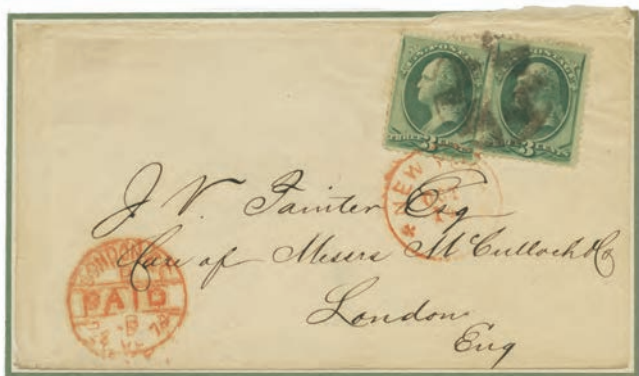 U.S. POSTAGE
3
POSTAGE
3 CENTS
NEW
J. V. Painter Esq
Care of Messrs McCulloch & Co
London
Eng
LONDON
PAID